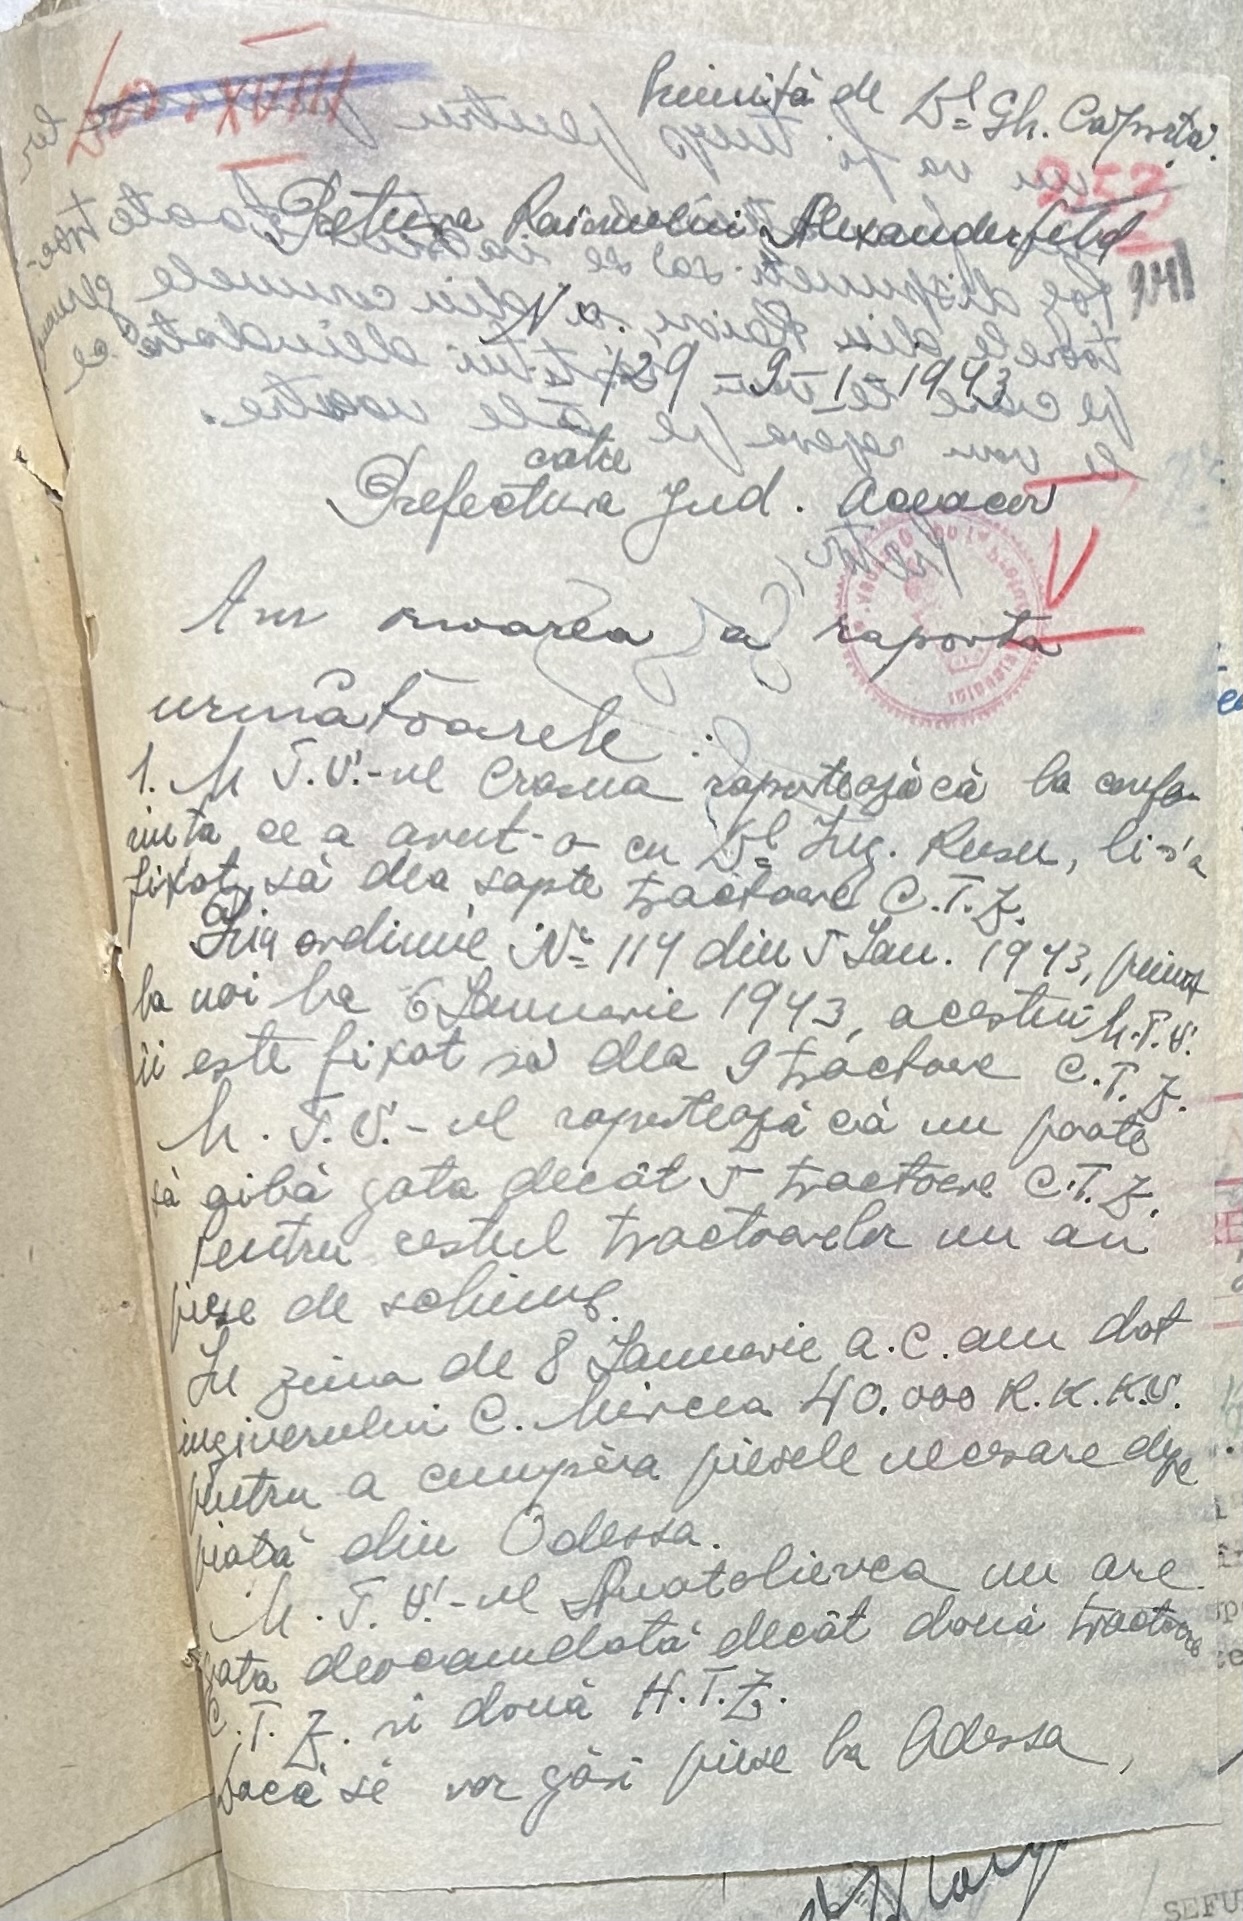 XVIII
Primită de Dl Gh. Caporta.
252
Pretura Raionului Alexanderfeld
941
No.
139 – 9 – I – 1943
catre
Prefectura Jud. Ananiev
Am onoarea a raporta
următoarele :
1. M.T.S.-ul Crasna raportează că la confe-
rinta ce a avut-o cu Dl Ing. Rusu, li-s'a
fixat să dea sapte tractoare C.T.Z.
Prin ordinul No 114 din 5 Ian. 1943, primit
la noi la 6 Ianuarie 1943, acestui M.T.S.
îi este fixat să dea 9 tractoare C.T.Z.
M.T.S.-ul raportează că nu poate
să aibă gata decât 5 tractoare C.T.Z.
Pentru restul tractoarelor nu au
piese de schimb.
In ziua de 8 Ianuarie a.c. am dat
inginerului C. Mircea 40.000 R.K.K.S.
pentru a cumpăra piesele necesare depe
piată din Odessa.
M.T.S.-ul Anatolievca nu are
gata deocamdată decât două tractoare
C.T.Z. si două H.T.Z.
Dacă se vor găsi piese la Odessa,
SEFU